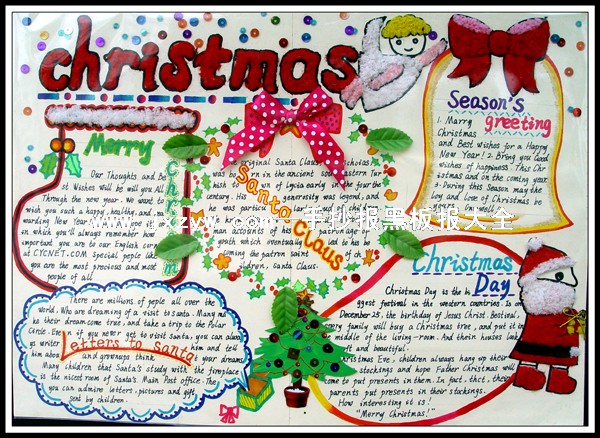 christmas
Merry
Christm
Our Thoughts and Be
st Wishes will be will you All
Through the year. We want to
wish you such a happy, healthy, and
warding New Year!
in which you'll always remember how
important you are to our English cur
at CYCNET.COM Special people like
you are the most precious and most
people of all
Santa Claus
original Santa Claus,
was born in the ancient south eastern Tur
kish town of Lycia early in the four
century. His generosity was legend, and
he was particularly
man accounts of his patronage of
youth which eventually led to his be
coming the patron saint of
children, santa Claus.
Season's
greeting
1. Marry
Christmas
and Best wishes for a Happy
New Year! 2. Bring you Good
wishes of happiness. This Chr
istmas and on the coming year
3. During this Season may the
joy and love of Christmas be
yours
Letters to Santa
There are millions of people all over the
world. Who are dreaming of a visit to santa. Many ma
ke their dream come true, and take a trip to the Polar
Circle. Even if you never get to visit Santa, you can always
write him and tell
him about your dreams.
and grownups think
Many children that Santa's study with the fireplace
is the nicest room of Santa's Main Post office. The
you can admire letters, pictures and gift
sent by children.
Christmas
Day
Christmas Day is the b
iggest festival in the western countries. Is on
December 25, the birthday of Jesus Christ. Bestival,
every family will buy a Christmas tree, and put it in
middle of the living-room. And their houses look
and beautiful.
Christmas Eve, children always hang up their
stockings and hope Father Christmas will
come to put presents in them. In fact, their
parents put presents in their stockings.
How interesting it is!
"Merry Christmas!"
手抄报黑板报大全